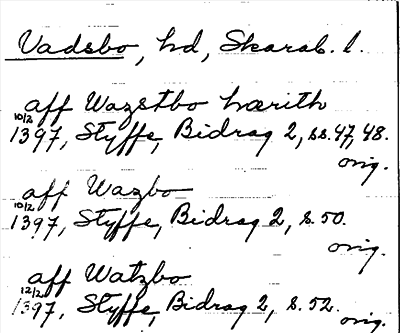 Vadsbo, hd, Skarab. l.
aff Wazstbo hærith
10/2
1397, Styffe, Bidrag 2, ss. 47, 48.
orig.
aff Wazbo
10/2
1397, Styffe, Bidrag 2, s. 50.
orig.
aff Watzbo
12/2
1397, Styffe, Bidrag 2, s. 52.
orig.